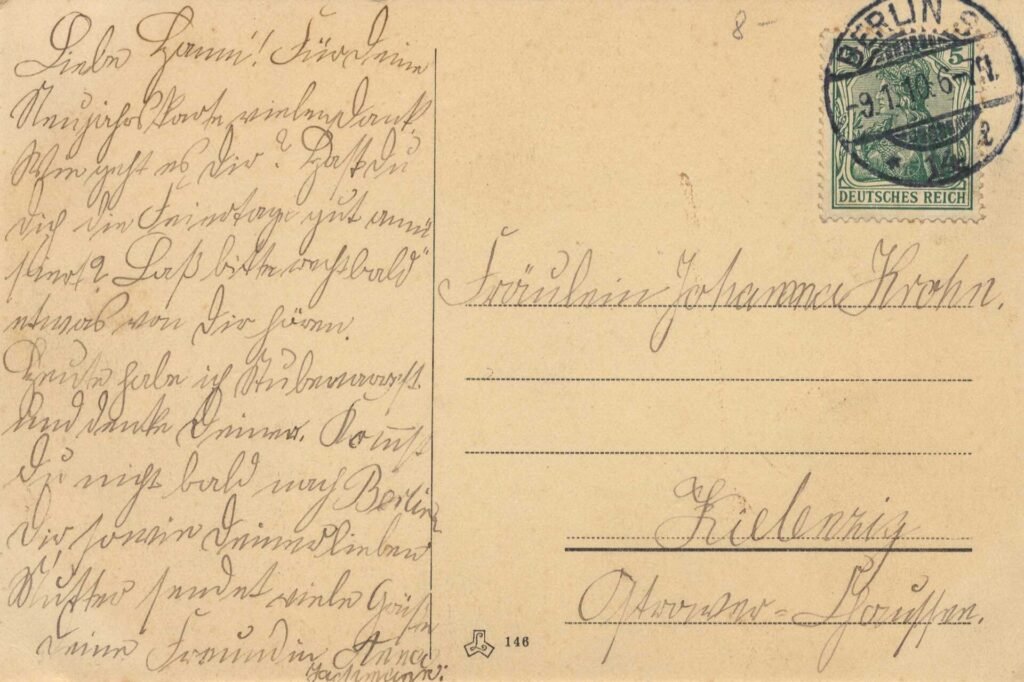 Liebe Hanni! Für deine
Neujahrskarte vielen dank.
Wie geht es Dir? Hast du
dich die Feiertage gut amü
siert? Laß bitte recht bald
etwas von Dir hören.
Heute habe ich Stubenarrest
und denke Deiner. Kommst
du nicht bald nach Berlin
Dir, sowie Deiner lieben
Mutter sendet viele Grüße
Deine Freundin
8-
BERLIN S.
-9.1.10.6-7N.
* 14 e
5
DEUTSCHES REICH
Fräulein Johanna Krohn.
Zielenzig
Ostrower-Chaussee.
146